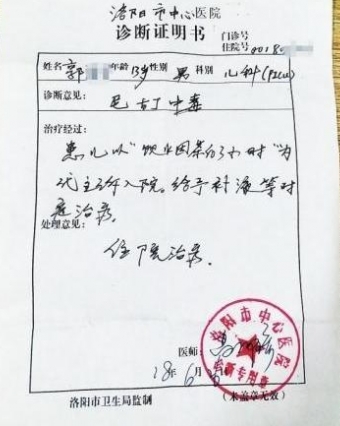 洛阳市中心医院
诊断证明书
门诊号
住院号 0018
姓名 郭 年龄 13岁 性别 男 科别 儿科(PICU)
诊断意见:
尼古丁中毒
治疗经过:
患儿以"饮 小时"为
代主诉入院。给予补液等对
症治疗。
处理意见:
住院治疗。
洛阳市中心医院
医师:
诊断专用章
18年6月
洛阳市卫生局监制 (未盖章无效)